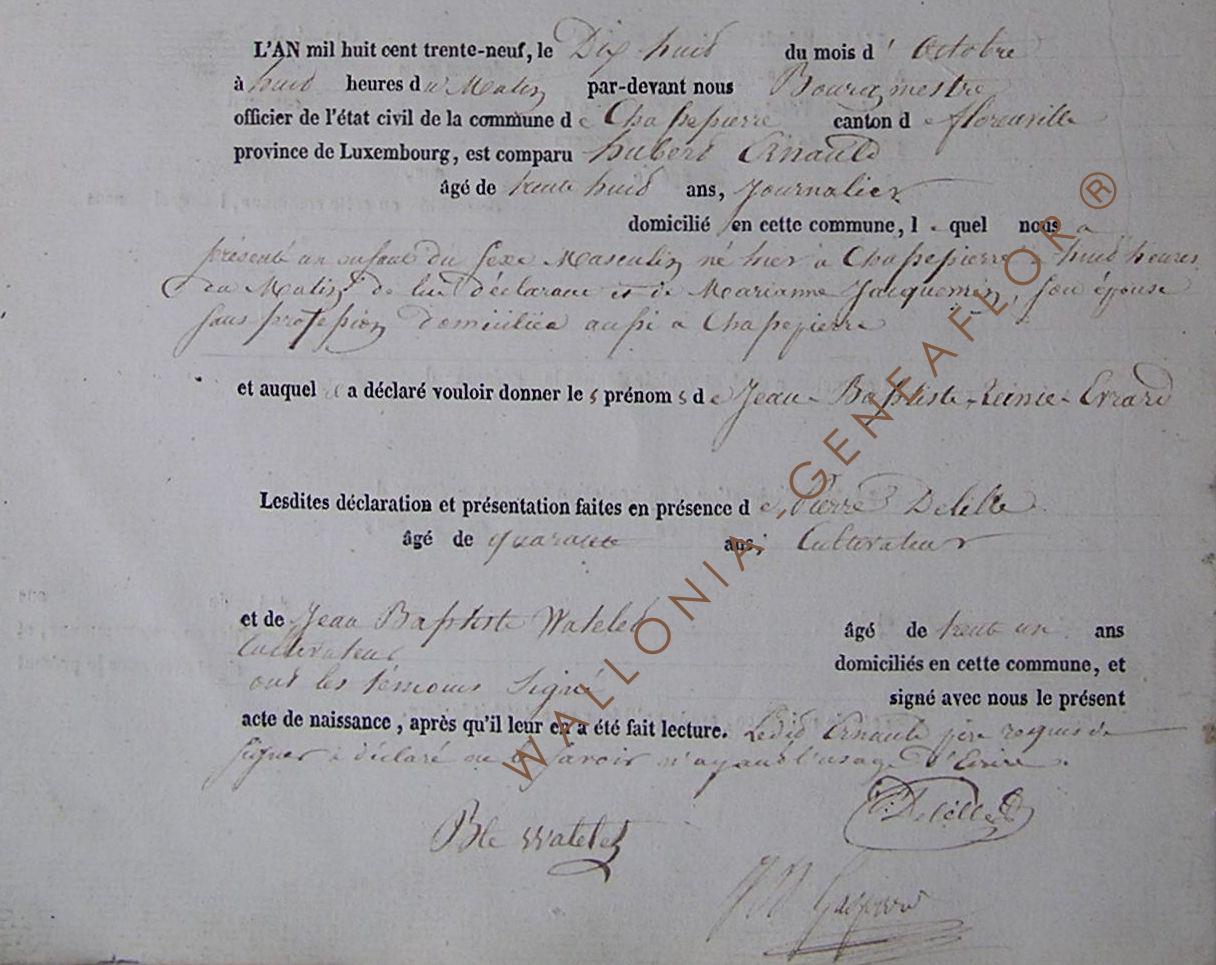 L'AN mil huit cent trente-neuf, le Dix huid du mois d' Octobre
à huid heures du Matin par-devant nous Bourgmestre
officier de l'état civil de la commune de Chassepierre canton de florenville
province de Luxembourg, est comparu hubert Ernauld
âgé de trente huid ans, Journalier
domicilié en cette commune, le quel nous a
présenté un enfant du sexe Masculin né hier à Chassepierre à huid heures
du Matin de lui déclarant et de Marianne Jacquemin, son épouse
sans profession domiciliée aussi à Chassepierre
et auquel il a déclaré vouloir donner les prénoms de Jean-Baptiste- -Errard
Lesdites déclaration et présentation faites en présence de Pierre Delille
âgé de quarante ans, Cultivateur
et de Jean Baptiste Watelet âgé de trente un ans
Cultivateur domiciliés en cette commune, et
ont les témoins signé signé avec nous le présent
acte de naissance, après qu'il leur en a été fait lecture. Ledid Ernauld père requis de
signer a déclaré ne le savoir n'ayant l'usage d'Ecrire.
Delille
Bte Watelet
WALLONIA GENEAFLOR ®